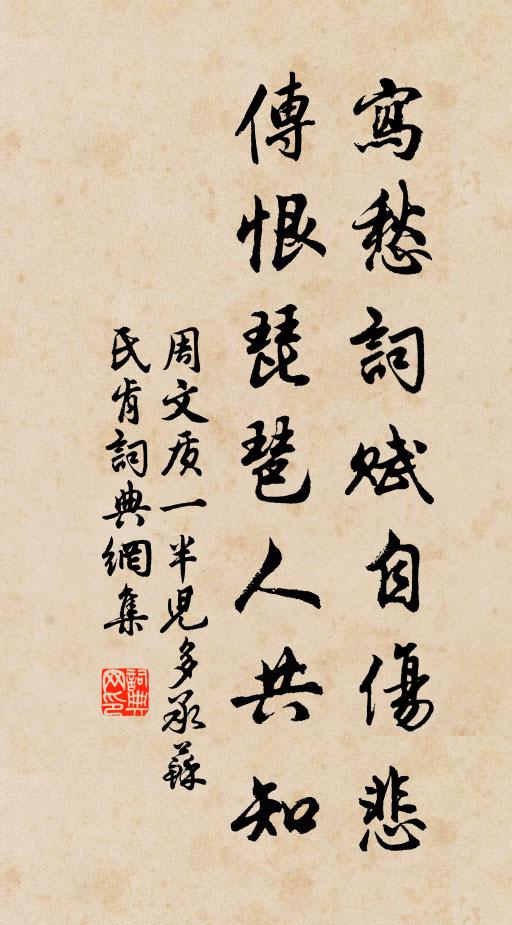 寫愁詞賦自傷悲
傳恨琵琶人共知
周文质一半児多承蘇
民肯詞典網集
詞典网印